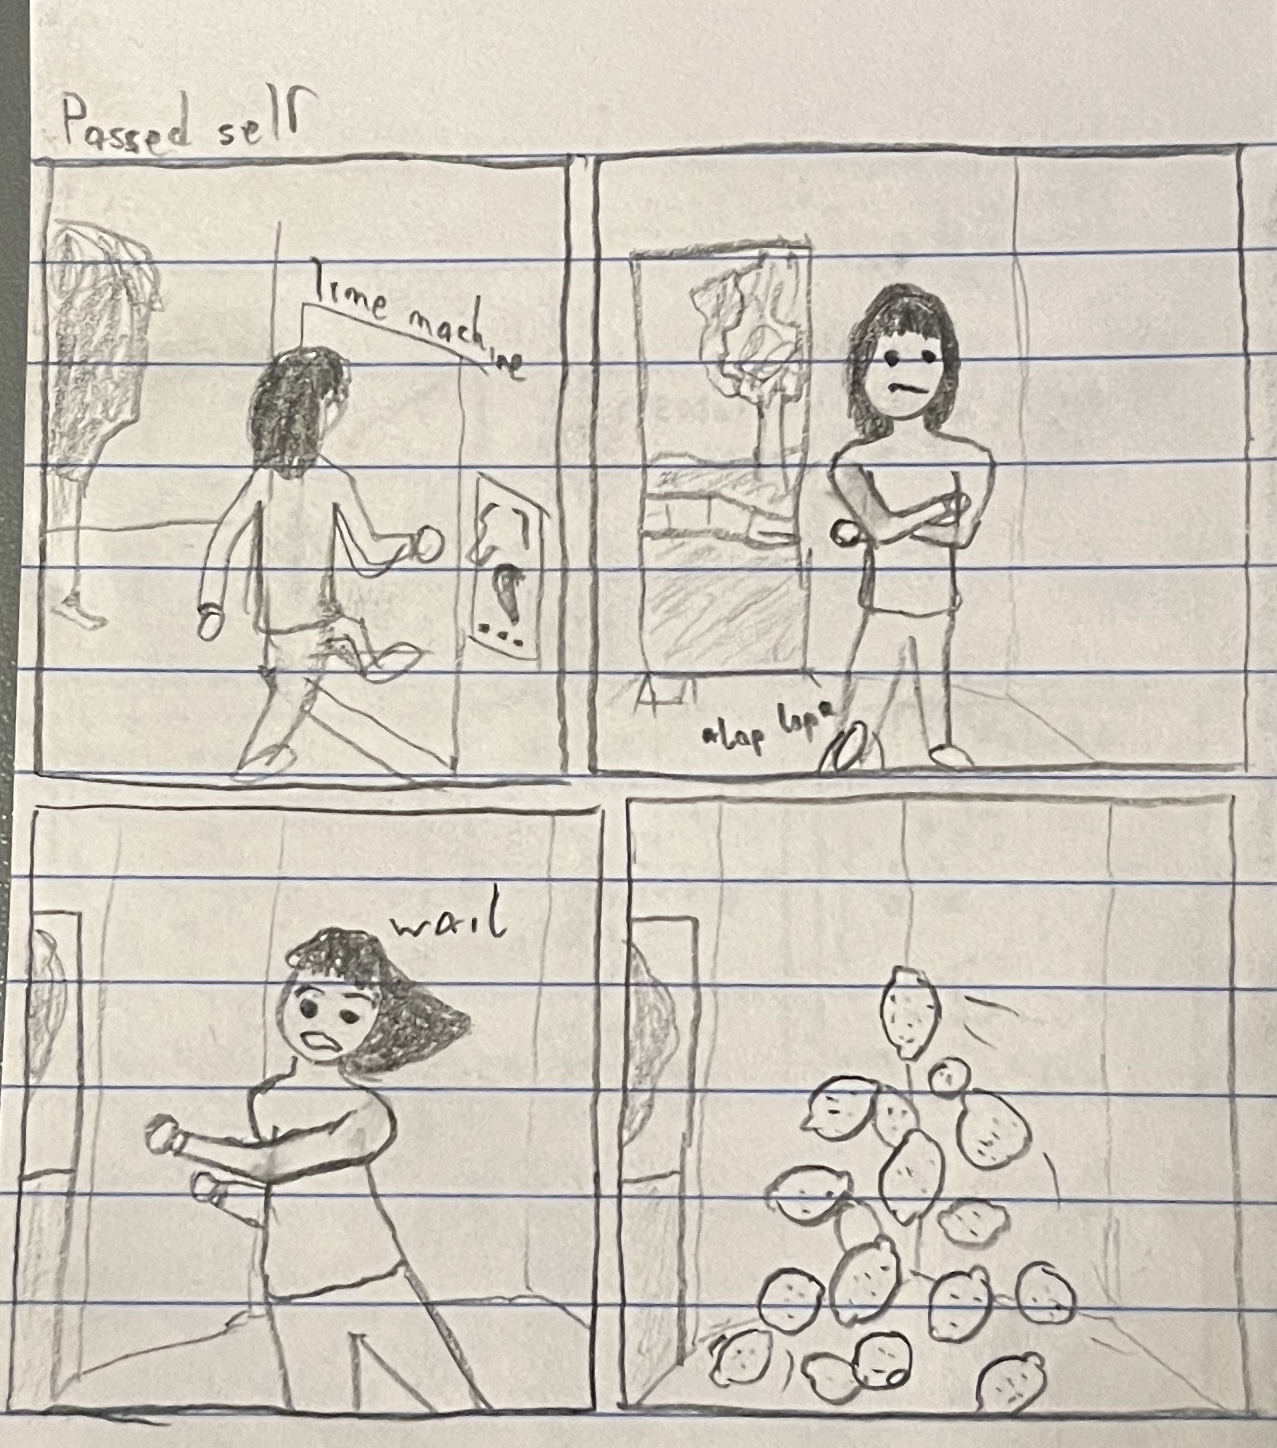 Passed self
Time machine
*tap tap*
wait